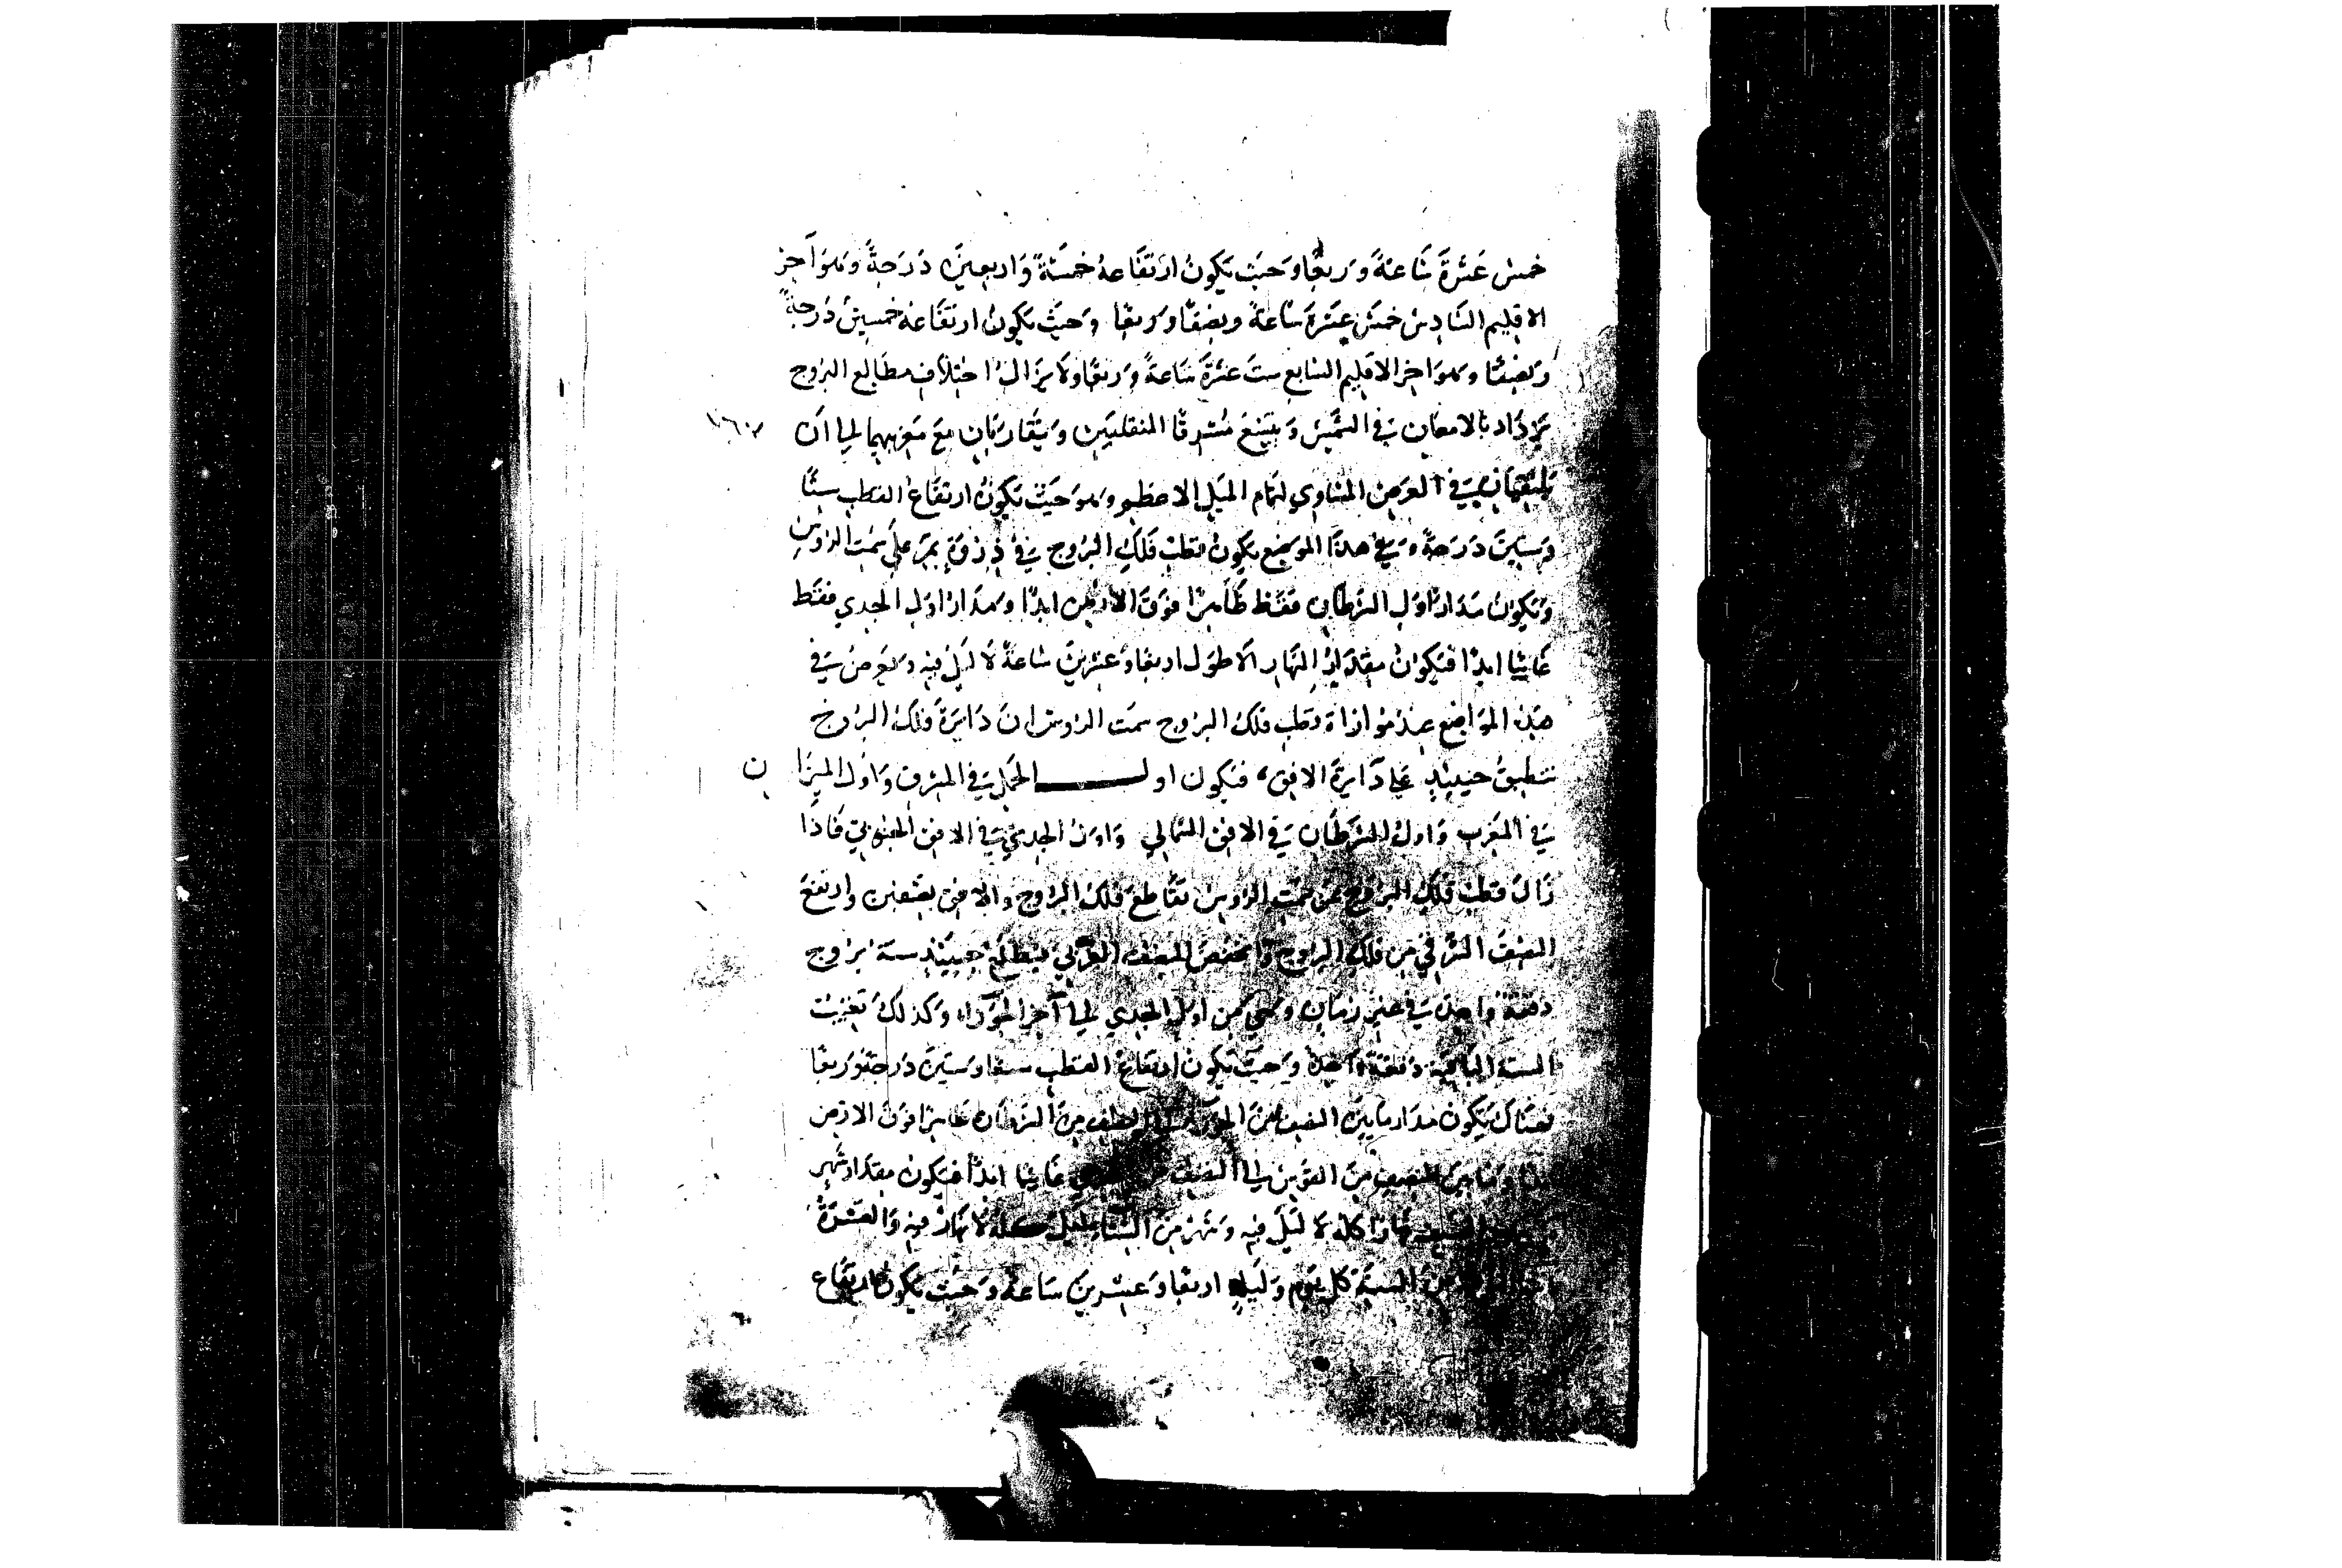 خمس عشرة ساعة وربعا وحيث يكون ارتفاعه خمسة واربعين درجة وهو آخر
الاقليم السادس خمس عشرة ساعة ونصفا وربعا وحيث يكون ارتفاعه خمسين درجة
ونصفا وهو اخر الاقليم السابع ست عشرة ساعة وربعا ولا يزال اختلاف مطالع البروج
يزداد بالامعان في الشمس ويتسع مشرقا المنقلبين ويتقاربان مع مغربيهما الى ان
يلتقيان في العرض المساوي لتمام الميل الاعظم وهو حيث يكون ارتفاع القطب ستا
وستين درجة وفي هذا الموضع يكون قطب فلك البروج في دورة يمر على سمت الرؤس
ويكون مدار اول السرطان فقط ظاهرا فوق الارض ابدا ومدار اول الجدي فقط
غائبا ابدا فيكون مقدار النهار الاطول اربعا وعشرين ساعة لا ليل فيه ويعرض في
هذه المواضع عند موازاة قطب فلك البروج سمت الرؤس ان دايرة فلك البروج
تنطبق حينيذ على دايرة الافق فيكون اول الحمل في المشرق واول الميزان
في المغرب واول السرطان في الافق الشمالي واول الجدي في الافق الجنوبي فاذا
زال قطب فلك البروج عن سمت الرؤس تقاطع فلك البروج والافق بنصفين وارتفع
النصف الشرقي من فلك البروج وانخفض النصف الغربي فيطلع حينيذ ستة بروج
دفعة واحدة في غير زمان وهي من اول الجدي الى آخر الجوزاء وكذلك تغيب
الستة الباقية دفعة واحدة وحيث يكون ارتفاع القطب سبعا وستين درجة وربعا
فهناك يكون مدار ما بين النصف من الجوزاء الى النصف من السرطان ظاهرا فوق الارض
ابدا وما بين النصف من القوس الى النصف من الجدي غائبا ابدا فيكون مقدار شهر
من الصيف نهارا كله لا ليل فيه وشهر من الشتاء ليل كله لا نهار فيه والعشرة
من السنة كل يوم وليلة اربعا وعشرين ساعة وحيث يكون ارتفاع